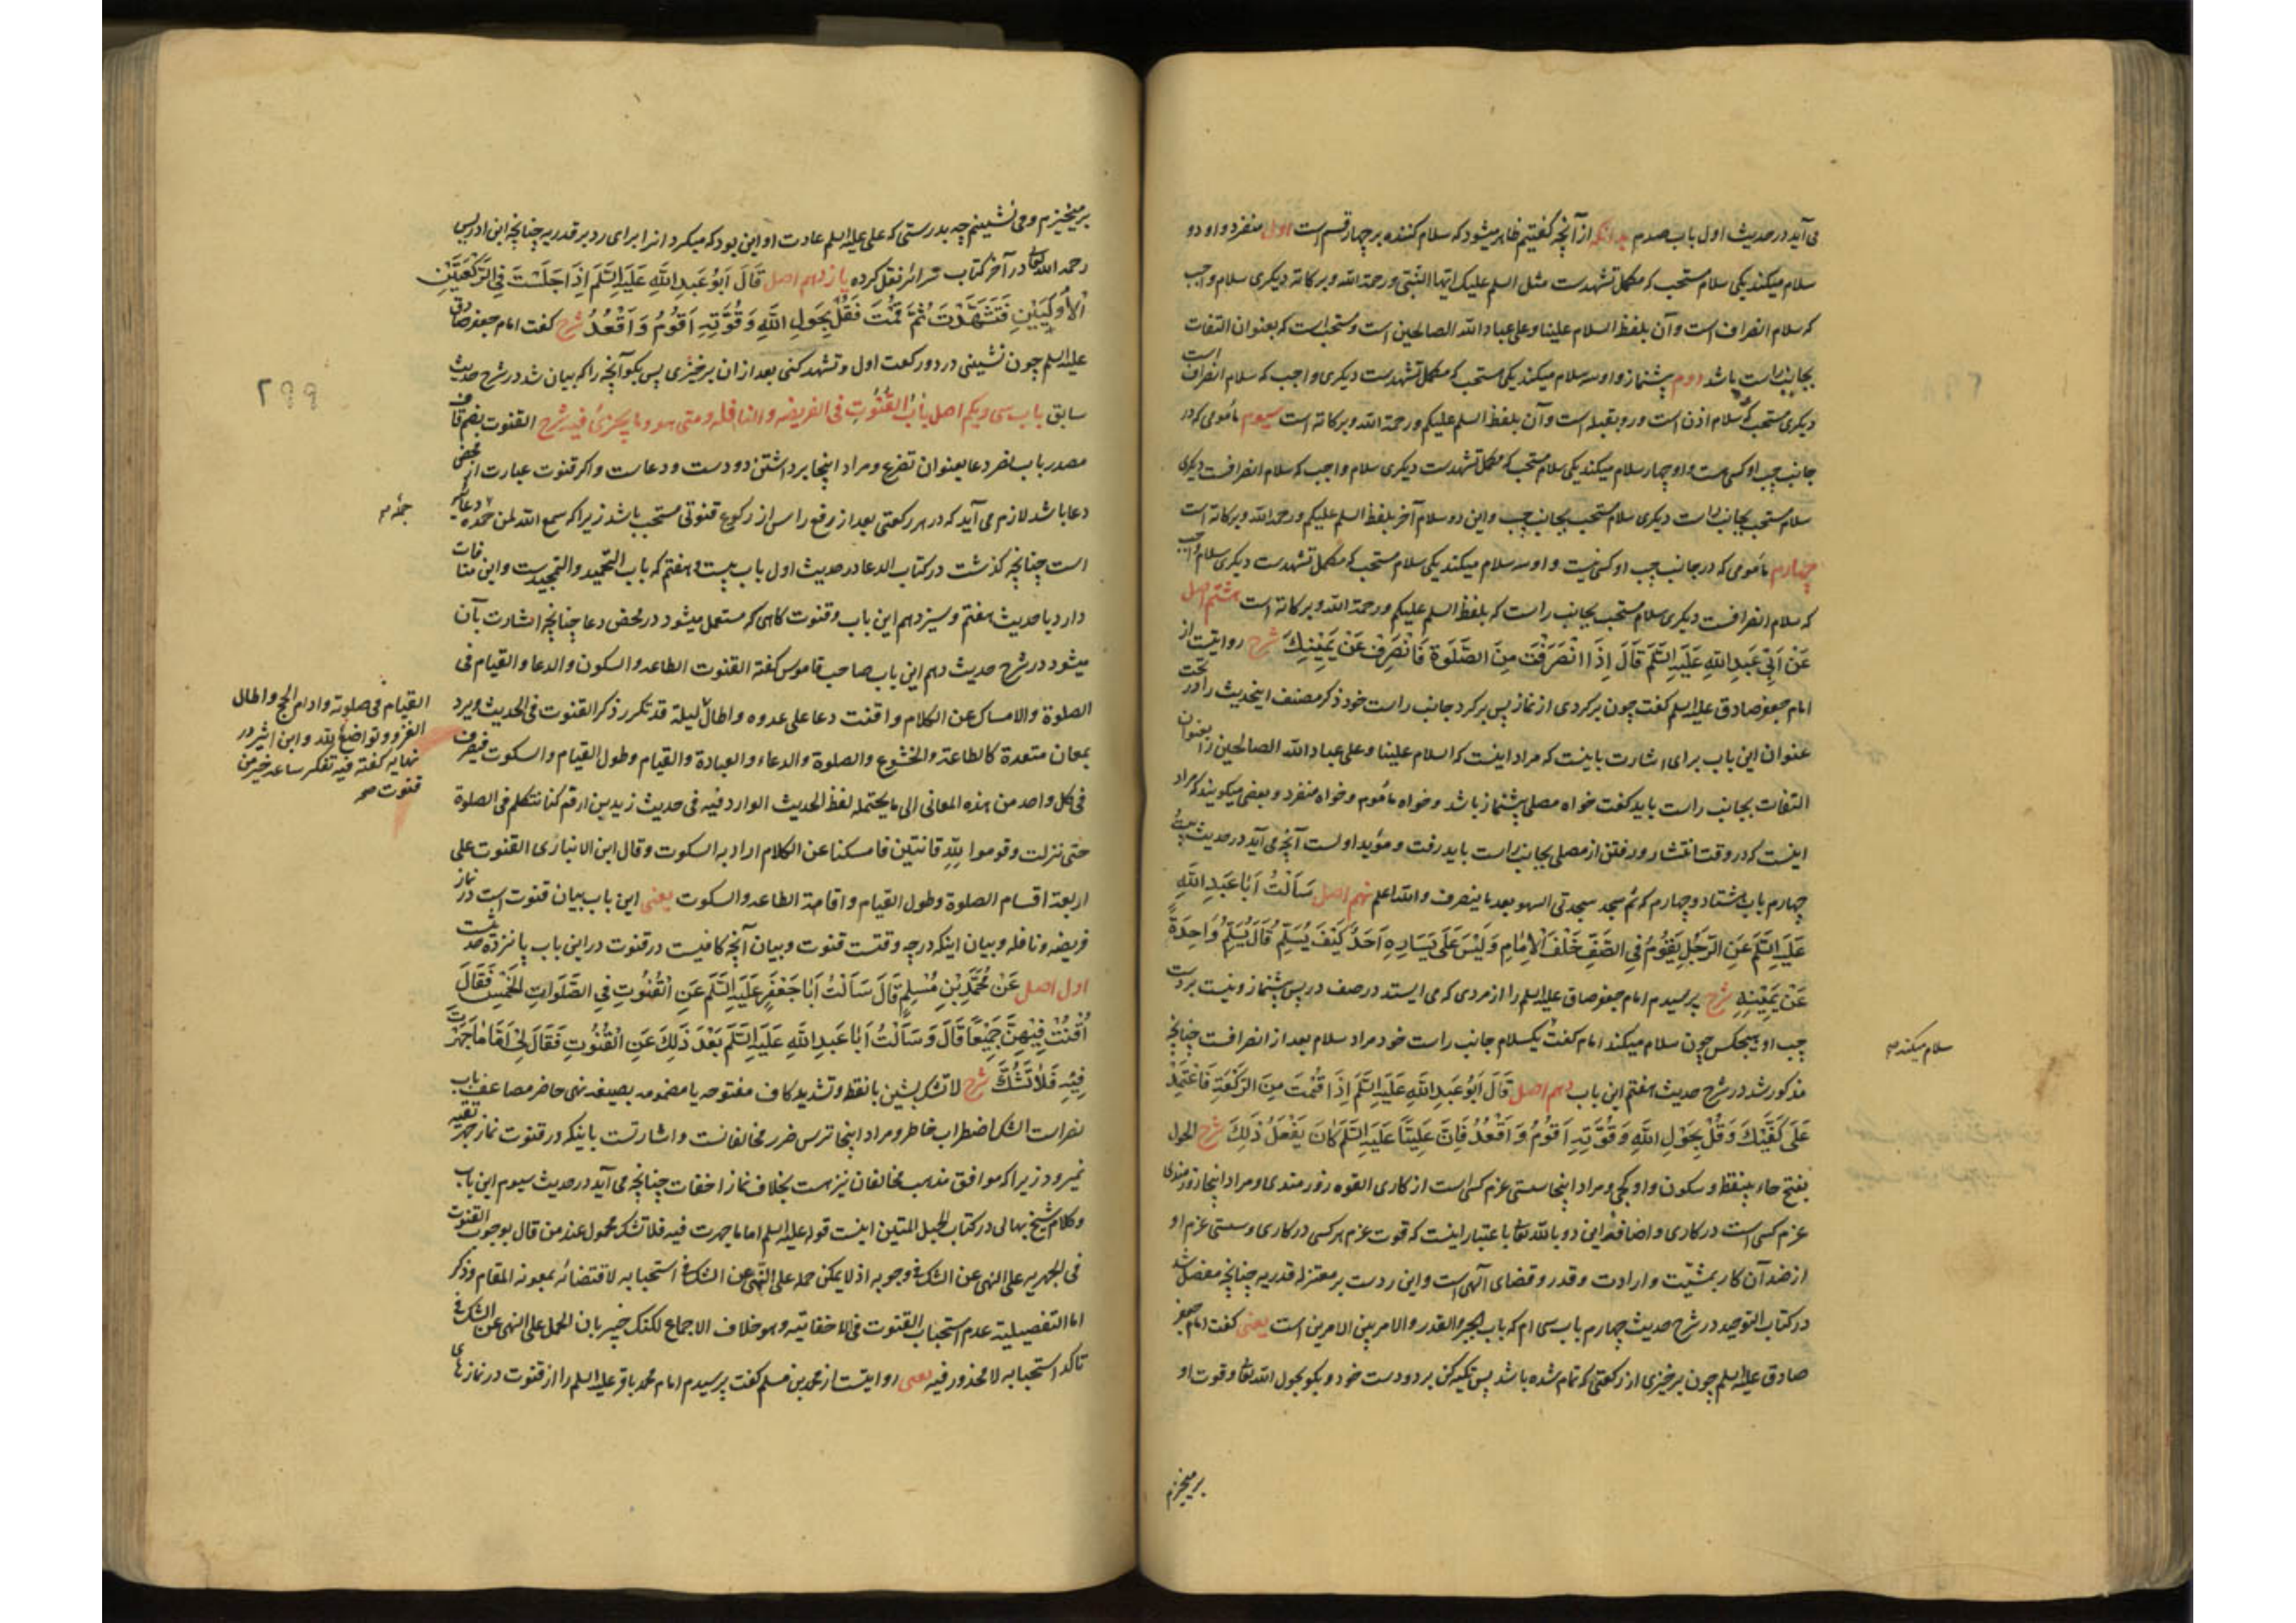 می آید در حدیث اول باب صدم بدانکه از آنچه گفتیم ظاهر میشود که سلام کننده بر چهار قسم است اول منفرد و او دو
سلام میکند یکی سلام مستحب که مکمل تشهدست مثل السلم علیک ایها النبی و رحمة الله و برکاته دیگری سلام واجب
که سلام انصراف است و آن بلفظ السلام علینا و علی عباد الله الصالحین است و مستحب است که بعنوان التفات
بجانب راست باشد دوم پیشنماز و او سه سلام میکند یکی مستحب که مکمل تشهدست دیگری واجب که سلام انصراف است
دیگری مستحب که سلام اذن است و رو بقبله است و آن بلفظ السلم علیکم و رحمة الله و برکاته است سیوم مأمومی که در
جانب چپ او کسی هست و او چهار سلام میکند یکی سلام مستحب که مکمل تشهدست دیگری سلام واجب که سلام انصرافست دیگری
سلام مستحب بجانب راست دیگری سلام مستحب بجانب چپ و این دو سلام آخر بلفظ السلم علیکم و رحمة الله و برکاته است
چهارم مأمومی که در جانب چپ او کسی نیست و او سه سلام میکند یکی سلام مستحب که مکمل تشهدست دیگری سلام واجب
که سلام انصرافست دیگری سلام مستحب بجانب راست که بلفظ السلم علیکم و رحمة الله و برکاته است هشتم اصل
عَنْ اَبِی عَبدِ اللهِ عَلَیهِ السَّلَم قَالَ اِذَا انْصَرَفْتَ مِنَ الصَّلٰوةِ فَانْصَرِفْ عَنْ یَمِیْنِكَ شرح روایتست از
امام جعفر صادق علیه السلم گفت چون برگردی از نماز پس برگرد جانب راست خود ذکر مصنف اینحدیث را در تحت
عنوان این باب برای اشارت باینست که مراد اینست که السلام علینا و علی عباد الله الصالحین را بعنوان
التفات بجانب راست باید گفت خواه مصلی پیشنماز باشد و خواه مأموم و خواه منفرد و بعضی میگویند که مراد
اینست که در وقت انتشار و رفتن از مصلی بجانب راست باید رفت و مؤید اولست آنچه می آید در حدیث بیست
چهارم باب هشتاد و چهارم که ثم سجد سجدتی السهو بعد ما ینصرف و الله اعلم نهم اصل سَاَلْتُ اَبَا عَبدِ اللهِ
عَلَیهِ السَّلَم عَنِ الرَّجُلِ یَقُوْمُ فِی الصَّفِّ خَلْفَ الْاِمَامِ وَ لَیْسَ عَلَی یَسَارِهِ اَحَدٌ کَیْفَ یُسَلِّمُ قَالَ یُسَلِّمُ وَاحِدَةً
عَنْ یَمِیْنِهِ شرح پرسیدم امام جعفر صادق علیه السلم را از مردی که می ایستد در صف در پس پیشنماز و نیست بر دست
چپ او هیچکس چون سلام میکند امام گفت یکسلام جانب راست خود مراد سلام بعد از انصرافست چنانچه
سلام میکند صح
مذکور شد در شرح حدیث هفتم این باب دهم اصل قَالَ اَبُو عَبدِ اللهِ عَلَیهِ السَّلَم اِذَا قُمْتَ مِنَ الرَّکْعَةِ فَاعْتَمِدْ
عَلَی کَفَّیْكَ وَ قُلْ بِحَوْلِ اللهِ وَ قُوَّتِهِ اَقُوْمُ وَ اَقْعُدُ فَاِنَّ عَلِیًّا عَلَیهِ السَّلَم کَانَ یَفْعَلُ ذٰلِكَ شرح الحول
بفتح حاء بینقطه و سکون واو کجی و مراد اینجا سستی عزم کسی است از کاری القوه زورمندی و مراد اینجا زورمندی
عزم کسی است در کاری و اضافه این دو بالله تعالی باعتبار اینست که قوت عزم هر کسی در کاری و سستی عزم او
از ضد آن کار بمشیت و ارادت و قدر و قضای الهی است و این ردست بر معتزله قدریه چنانچه مفصل شد
در کتاب التوحید در شرح حدیث چهارم باب سی ام که باب الجبر و القدر و الامر بین الامرین است یعنی گفت امام جعفر
صادق علیه السلم چون برخیزی از رکعتی که تمام شده باشد پس تکیه کن بر دو دست خود و بگو بحول الله تعالی و قوت او
برمیخیزم
برمیخیزم و می نشینم چه بدرستی که علی علیه السلم عادت او این بود که میکرد انرا برای رد بر قدریه چنانچه ابن ادریس
رحمه الله تعالی در آخر کتاب سرائر نقل کرده یازدهم اصل قَالَ اَبُو عَبدِ اللهِ عَلَیهِ السَّلَم اِذَا جَلَسْتَ فِی الرَّکْعَتَیْنِ
الْاُوْلَیَیْنِ فَتَشَهَّدْتَ ثُمَّ قُمْتَ فَقُلْ بِحَوْلِ اللهِ وَ قُوَّتِهِ اَقُوْمُ وَ اَقْعُدُ شرح گفت امام جعفر صادق
علیه السلم چون نشینی در دو رکعت اول و تشهد کنی بعد از ان برخیزی پس بگو آنچه را که بیان شد در شرح حدیث
۲۹۹
سابق باب سی و یکم اصل بابُ القُنُوتِ فی الفریضه و النافله و متی هو و ما یجزئ فیه شرح القنوت بضم قاف
مصدر باب نصر دعا بعنوان تضرع و مراد اینجا برداشتن دو دست و دعاست و اگر قنوت عبارت از محض
دعا باشد لازم می آید که در هر رکعتی بعد از رفع راس از رکوع قنوتی مستحب باشد زیرا که سمع الله لمن حمده دعای
است چنانچه گذشت در کتاب الدعا در حدیث اول باب بیست و هفتم که باب التحمید و التمجیدست و این منافات
دارد با حدیث هفتم و سیزدهم این باب و قنوت گاهی که مستعمل میشود در محض دعا چنانچه اشارت بآن
میشود در شرح حدیث دهم این باب صاحب قاموس گفته القنوت الطاعه و السکون و الدعا و القیام فی
الصلوة و الامساک عن الکلام و اقنت دعا علی عدوه و اطال لیلة قد تکرر ذکر القنوت فی الحدیث و یرد
القیام فی صلوته و ادام الحج و اطال
الغزو و تواضع لله و ابن اثیر در
نهایه گفته فیه تفکر ساعه خیر من
قنوت صح
بمعان متعددة کالطاعة و الخشوع و الصلوة و الدعاء و العبادة و القیام و طول القیام و السکوت فیصرف
فی کل واحد من هذه المعانی الی ما یحتمله لفظ الحدیث الوارد فیه فی حدیث زید بن ارقم کنا نتکلم فی الصلوة
حتی نزلت و قوموا لله قانتین فامسکنا عن الکلام اراد به السکوت و قال ابن الانباری القنوت علی
اربعة اقسام الصلوة و طول القیام و اقامة الطاعه و السکوت یعنی این باب بیان قنوت است در نماز
فریضه و نافله و بیان اینکه در چه وقتست قنوت و بیان آنچه کافیست در قنوت در این باب پانزده حدیث
اول اصل عَنْ مُحَمَّدِ بْنِ مُسْلِمٍ قَالَ سَاَلْتُ اَبَا جَعْفَرٍ عَلَیهِ السَّلَم عَنِ الْقُنُوتِ فِی الصَّلَوَاتِ الْخَمْسِ فَقَالَ
اُقْنُتْ فِیْهِنَّ جَمِیْعًا قَالَ وَ سَاَلْتُ اَبَا عَبدِ اللهِ عَلَیهِ السَّلَم بَعْدَ ذٰلِكَ عَنِ الْقُنُوتِ فَقَالَ لِی اَمَّا مَا جَهَرْتَ
فِیْهِ فَلَا تَشُكَّ شرح لا تشک بشین با نقطه و تشدید کاف مفتوحه یا مضمومه بصیغه نهی حاضر مضاعف باب
نصر است الشک اضطراب خاطر و مراد اینجا ترس ضرر مخالفانست و اشارتست باینکه در قنوت نماز جهر تقیه
نمیرود زیرا که موافق مذهب مخالفان نیز هست بخلاف نماز اخفات چنانچه می آید در حدیث سیوم این باب
و کلام شیخ بهائی در کتاب الحبل المتین اینست قوله علیه السلم اما ما جهرت فیه فلا تشک محمول عند من قال بوجوب القنوت
فی الجهریه علی النهی عن الشک فی وجوبه اذ لا یمکن حمله علی النهی عن الشک فی استحبابه لاقتضائه بمعونه المقام و ذکر
اما التفصیلیه عدم استحباب القنوت فی الاخفاتیه و هو خلاف الاجماع لکنک خبیر بان الحمل علی النهی عن الشک فی
تأکد استحبابه لا محذور فیه یعنی روایتست از محمد بن مسلم گفت پرسیدم امام محمد باقر علیه السلم را از قنوت در نمازهای